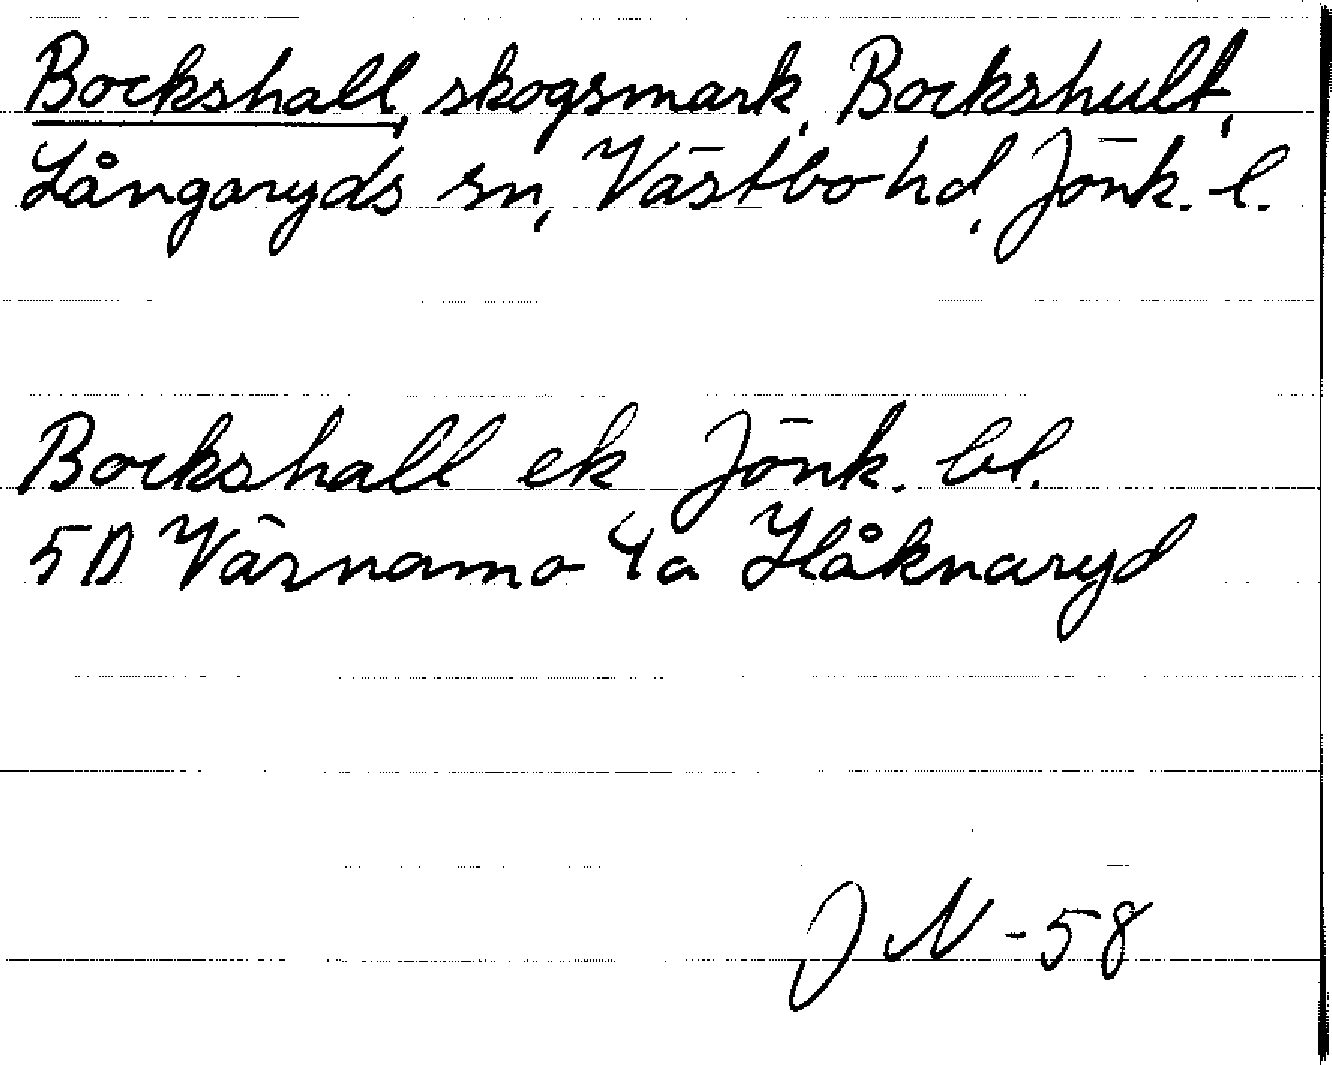 Bockshall, skogsmark, Bockshult,
Långaryds sn, Västbo hd, Jönk. l.
Bockshall ek Jönk. bl.
5D Värnamo 4a Håknaryd
JN-58